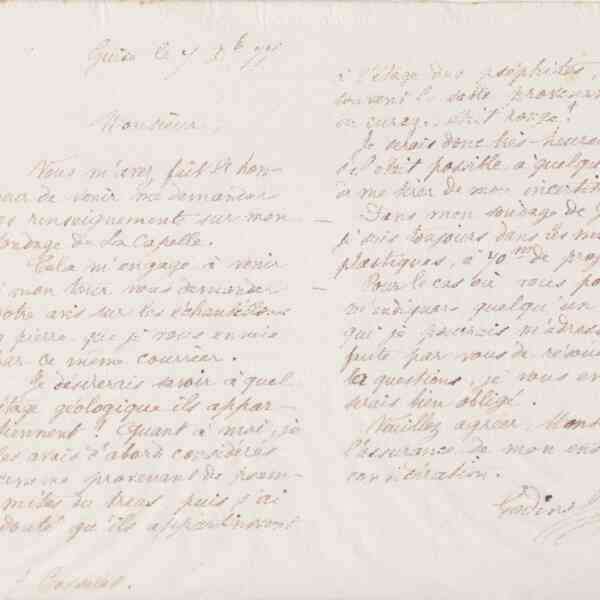 Guise le
Monsieur,
Vous m'avez fait l'hon-
neur de venir me demander
des renseignements sur mon
sondage de La Capelle.
Cela m'engage à venir
à mon tour vous demander
votre avis sur les échantillons
de pierre que je vous envoie
par ce même courrier.
Je désirerais savoir à quel
étage géologique ils appar-
tiennent? Quant à moi, je
les avais d'abord considérés
comme provenant de psam-
mites du trias puis j'ai
douté qu'ils appartinssent
à l'étage des
souvent le sable provenant
du curag était rouge!
Je serais donc très-heureux
s'il était possible à quelqu
de me tirer de mon incertit
Dans mon sondage de
je suis toujours dans les
plastiques, à 70m de prof
Pour le cas où vous
m'indiquer quelqu'un
qui je pourrais m'adress
faute par vous de résou
la questions, je vous en
serais bien obligé.
Veuillez agréer, Mons
l'assurance de mon
considération.
Godin